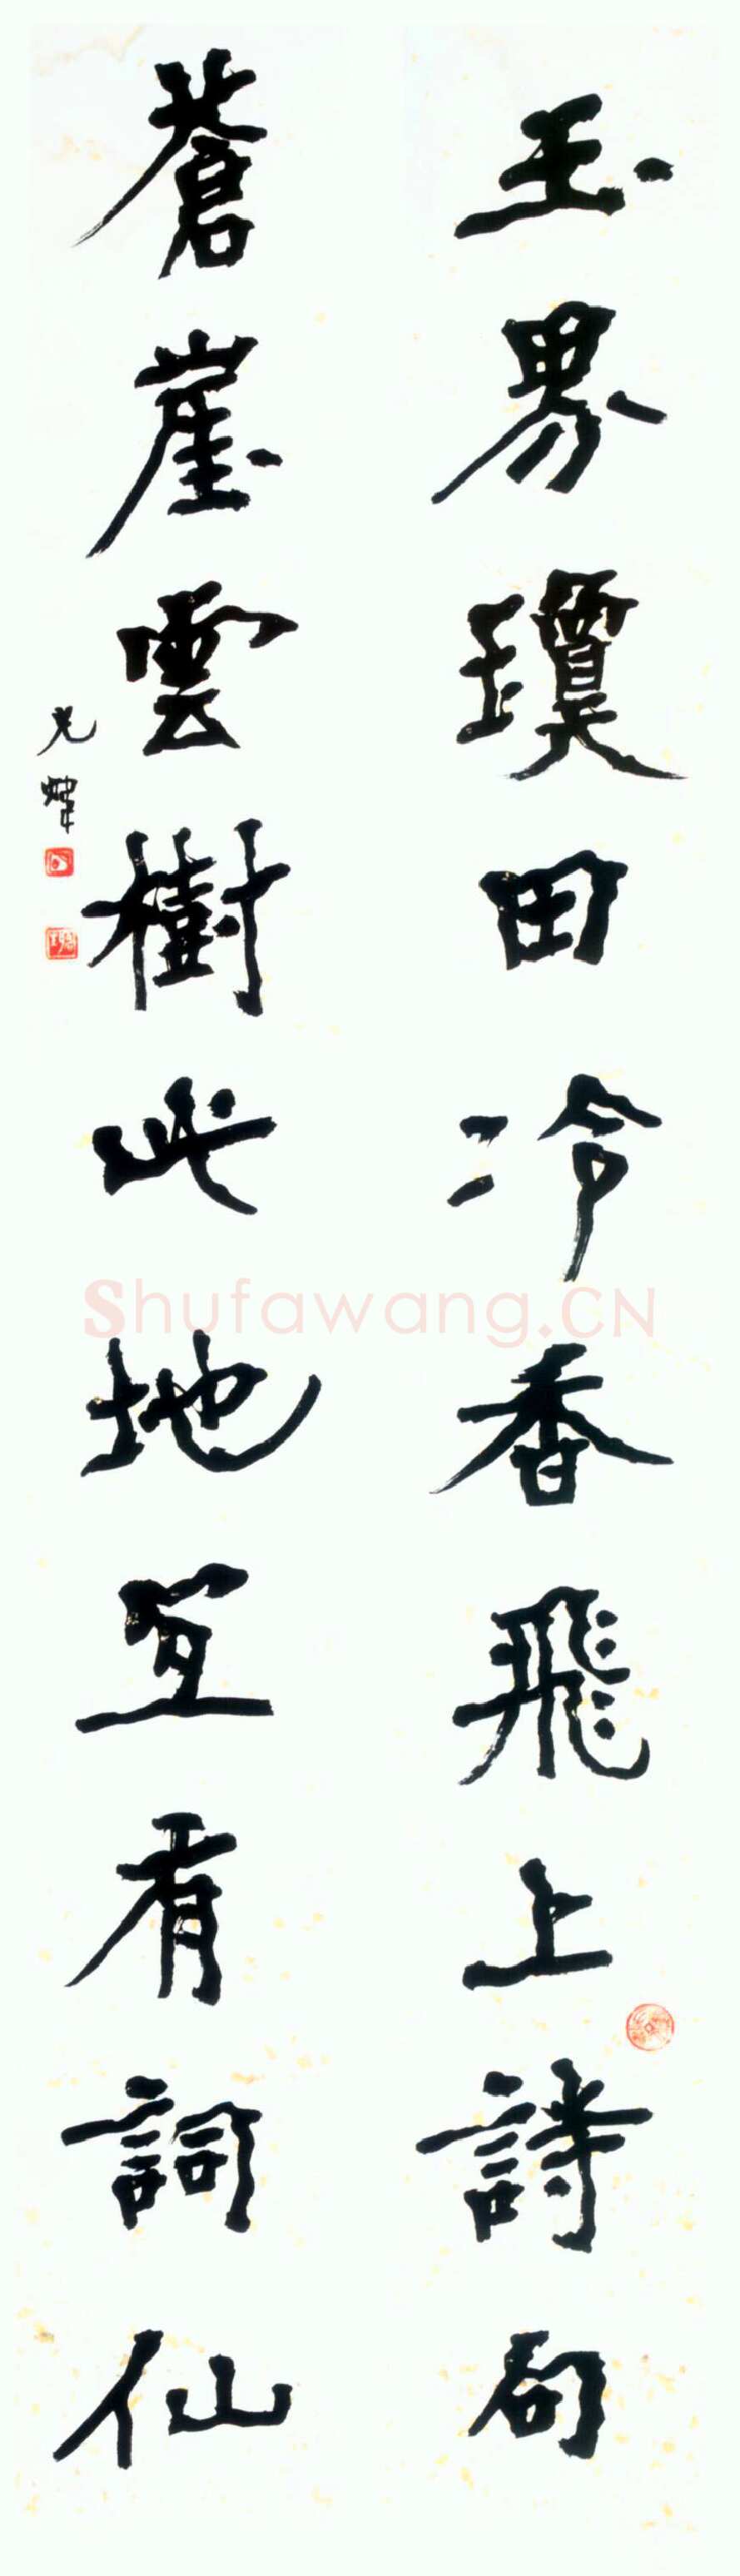 玉界瓊田冷香飛上詩句
蒼崖雲樹此地宜有詞仙
光煒
Shufawang.CN